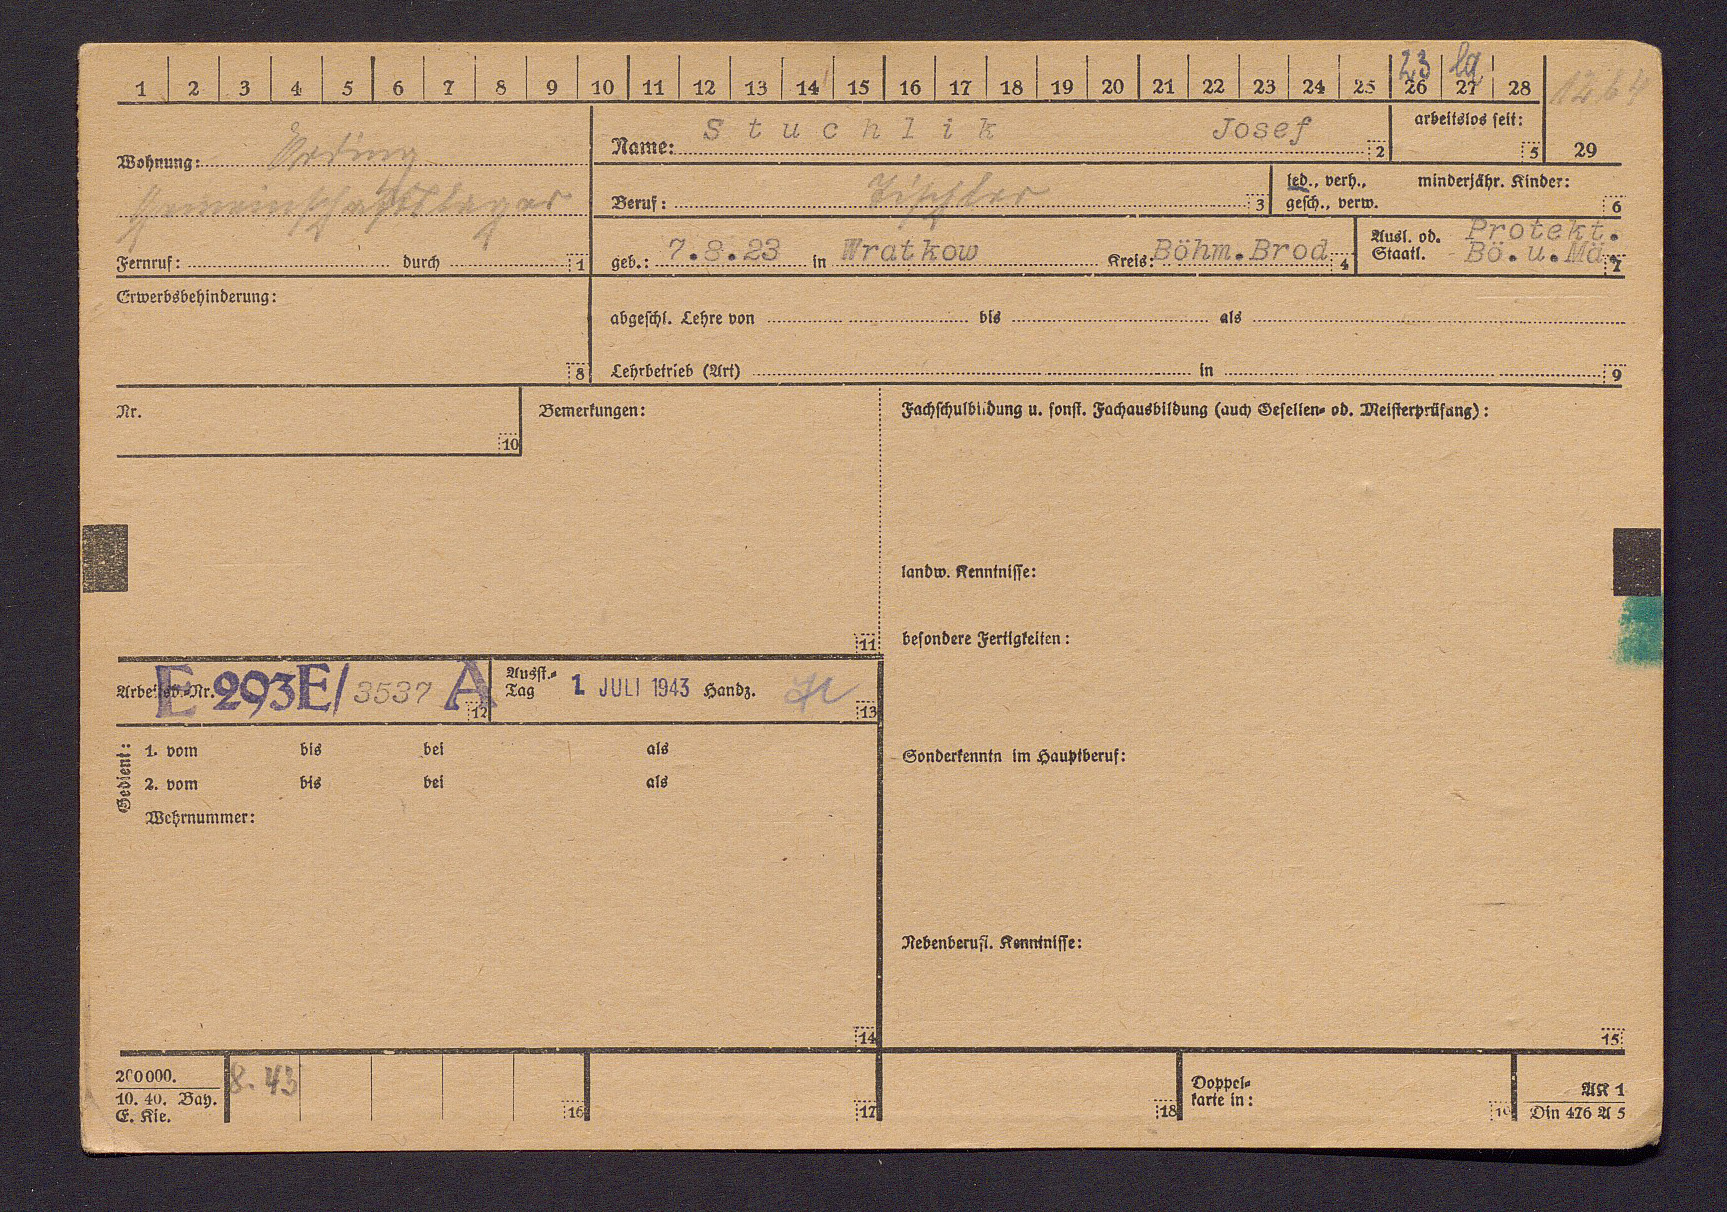 1 2 3 4 5 6 7 8 9 10 11 12 13 14 15 16 17 18 19 20 21 22 23 24 25 26 27 28
23 lg
1264
Wohnung: Erding
Gemeinschaftslager
Fernruf: durch 1
Name: Stuchlik Josef 2
arbeitslos seit:
5
29
Beruf: Tischler 3
led., verh., minderjähr. Kinder:
gesch., verw. 6
geb.: 7.8.23 in Wratkow Kreis: Böhm.Brod 4
Ausl. od. Protekt.
Staatl. Bö.u.Mä. 7
Erwerbsbehinderung:
8
abgeschl. Lehre von bis als
Lehrbetrieb (Art) in 9
Nr.
10
Bemerkungen:
11
Fachschulbildung u. sonst. Fachausbildung (auch Gesellen- od. Meisterprüfung):
landw. Kenntnisse:
besondere Fertigkeiten:
Sonderkenntn im Hauptberuf:
Nebenberufl. Kenntnisse:
15
Arbeitsb.-Nr. E 293E/3537 A 12
Ausst.-
Tag 1. JULI 1943 Handz. 13
Gedient:
1. vom bis bei als
2. vom bis bei als
Wehrnummer:
14
200000.
10. 40. Bay.
E. Kie.
8. 43
16
17
18
Doppel-
karte in:
19
AK 1
Din 476 A 5